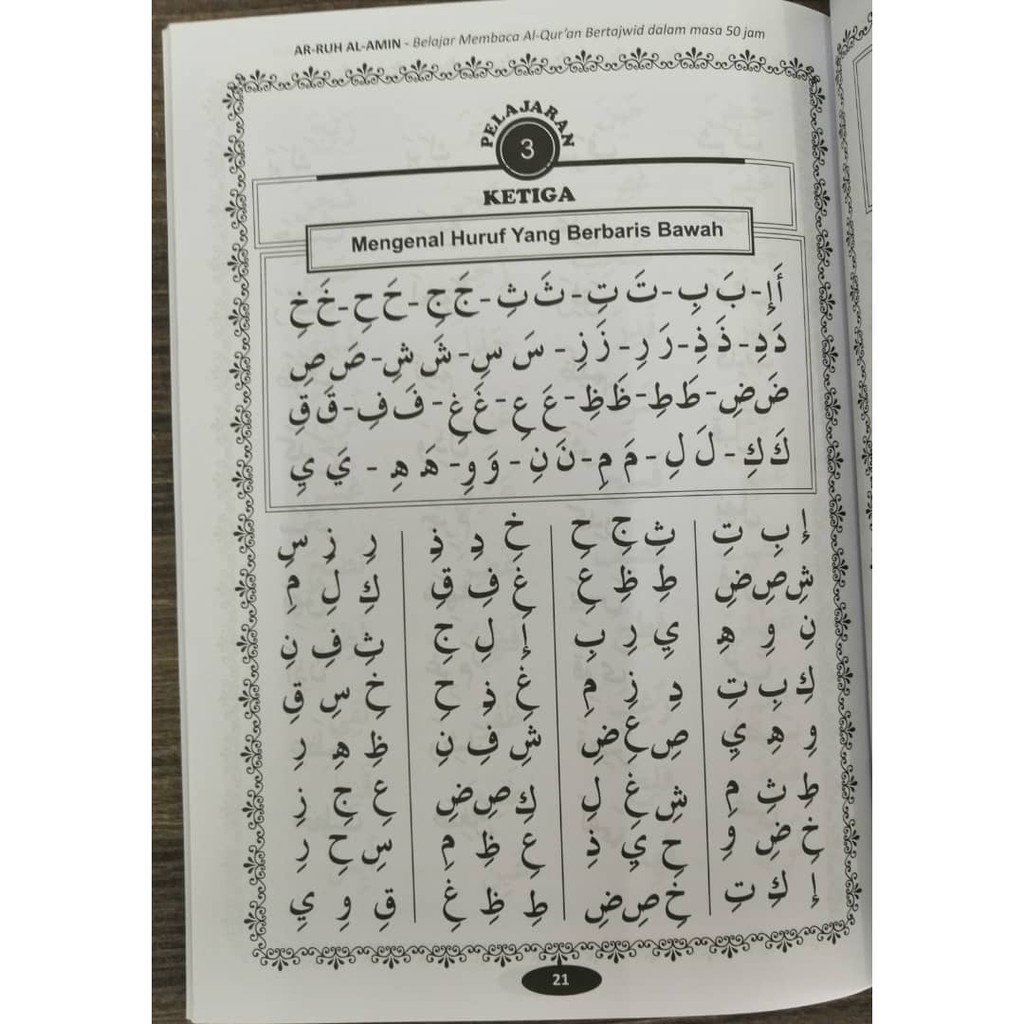 AR-RUH AL-AMIN - Belajar Membaca Al-Qur'an Bertajwid dalam masa 50 jam
PELAJARAN
3
KETIGA
Mengenal Huruf Yang Berbaris Bawah
أَإِ - بَ بِ - تَ تِ - ثَ ثِ - جَ جِ - حَ حِ - خَ خِ
دَ دِ - ذَ ذِ - رَ رِ - زَ زِ - سَ سِ - شَ شِ - صَ صِ
ضَ ضِ - طَ طِ - ظَ ظِ - عَ عِ - غَ غِ - فَ فِ - قَ قِ
كَ كِ - لَ لِ - مَ مِ - نَ نِ - وَ وِ - هَ هِ - يَ يِ
إِ بِ تِ ثِ جِ حِ خِ دِ ذِ رِ زِ سِ
شِ صِ ضِ طِ ظِ عِ غِ فِ قِ كِ لِ مِ
نِ وِ هِ يِ رِ بِ إِ لِ جِ ثِ فِ نِ
كِ بِ تِ دِ زِ مِ غِ ذِ حِ خِ سِ قِ
وِ هِ يِ صِ عِ ضِ شِ فِ نِ ظِ هِ رِ
طِ ثِ مِ شِ غِ لِ كِ صِ ضِ عِ جِ زِ
خِ ضِ وِ حِ يِ ذِ عِ ظِ مِ سِ حِ رِ
إِ كِ تِ خِ صِ ضِ طِ ظِ غِ قِ وِ يِ
21